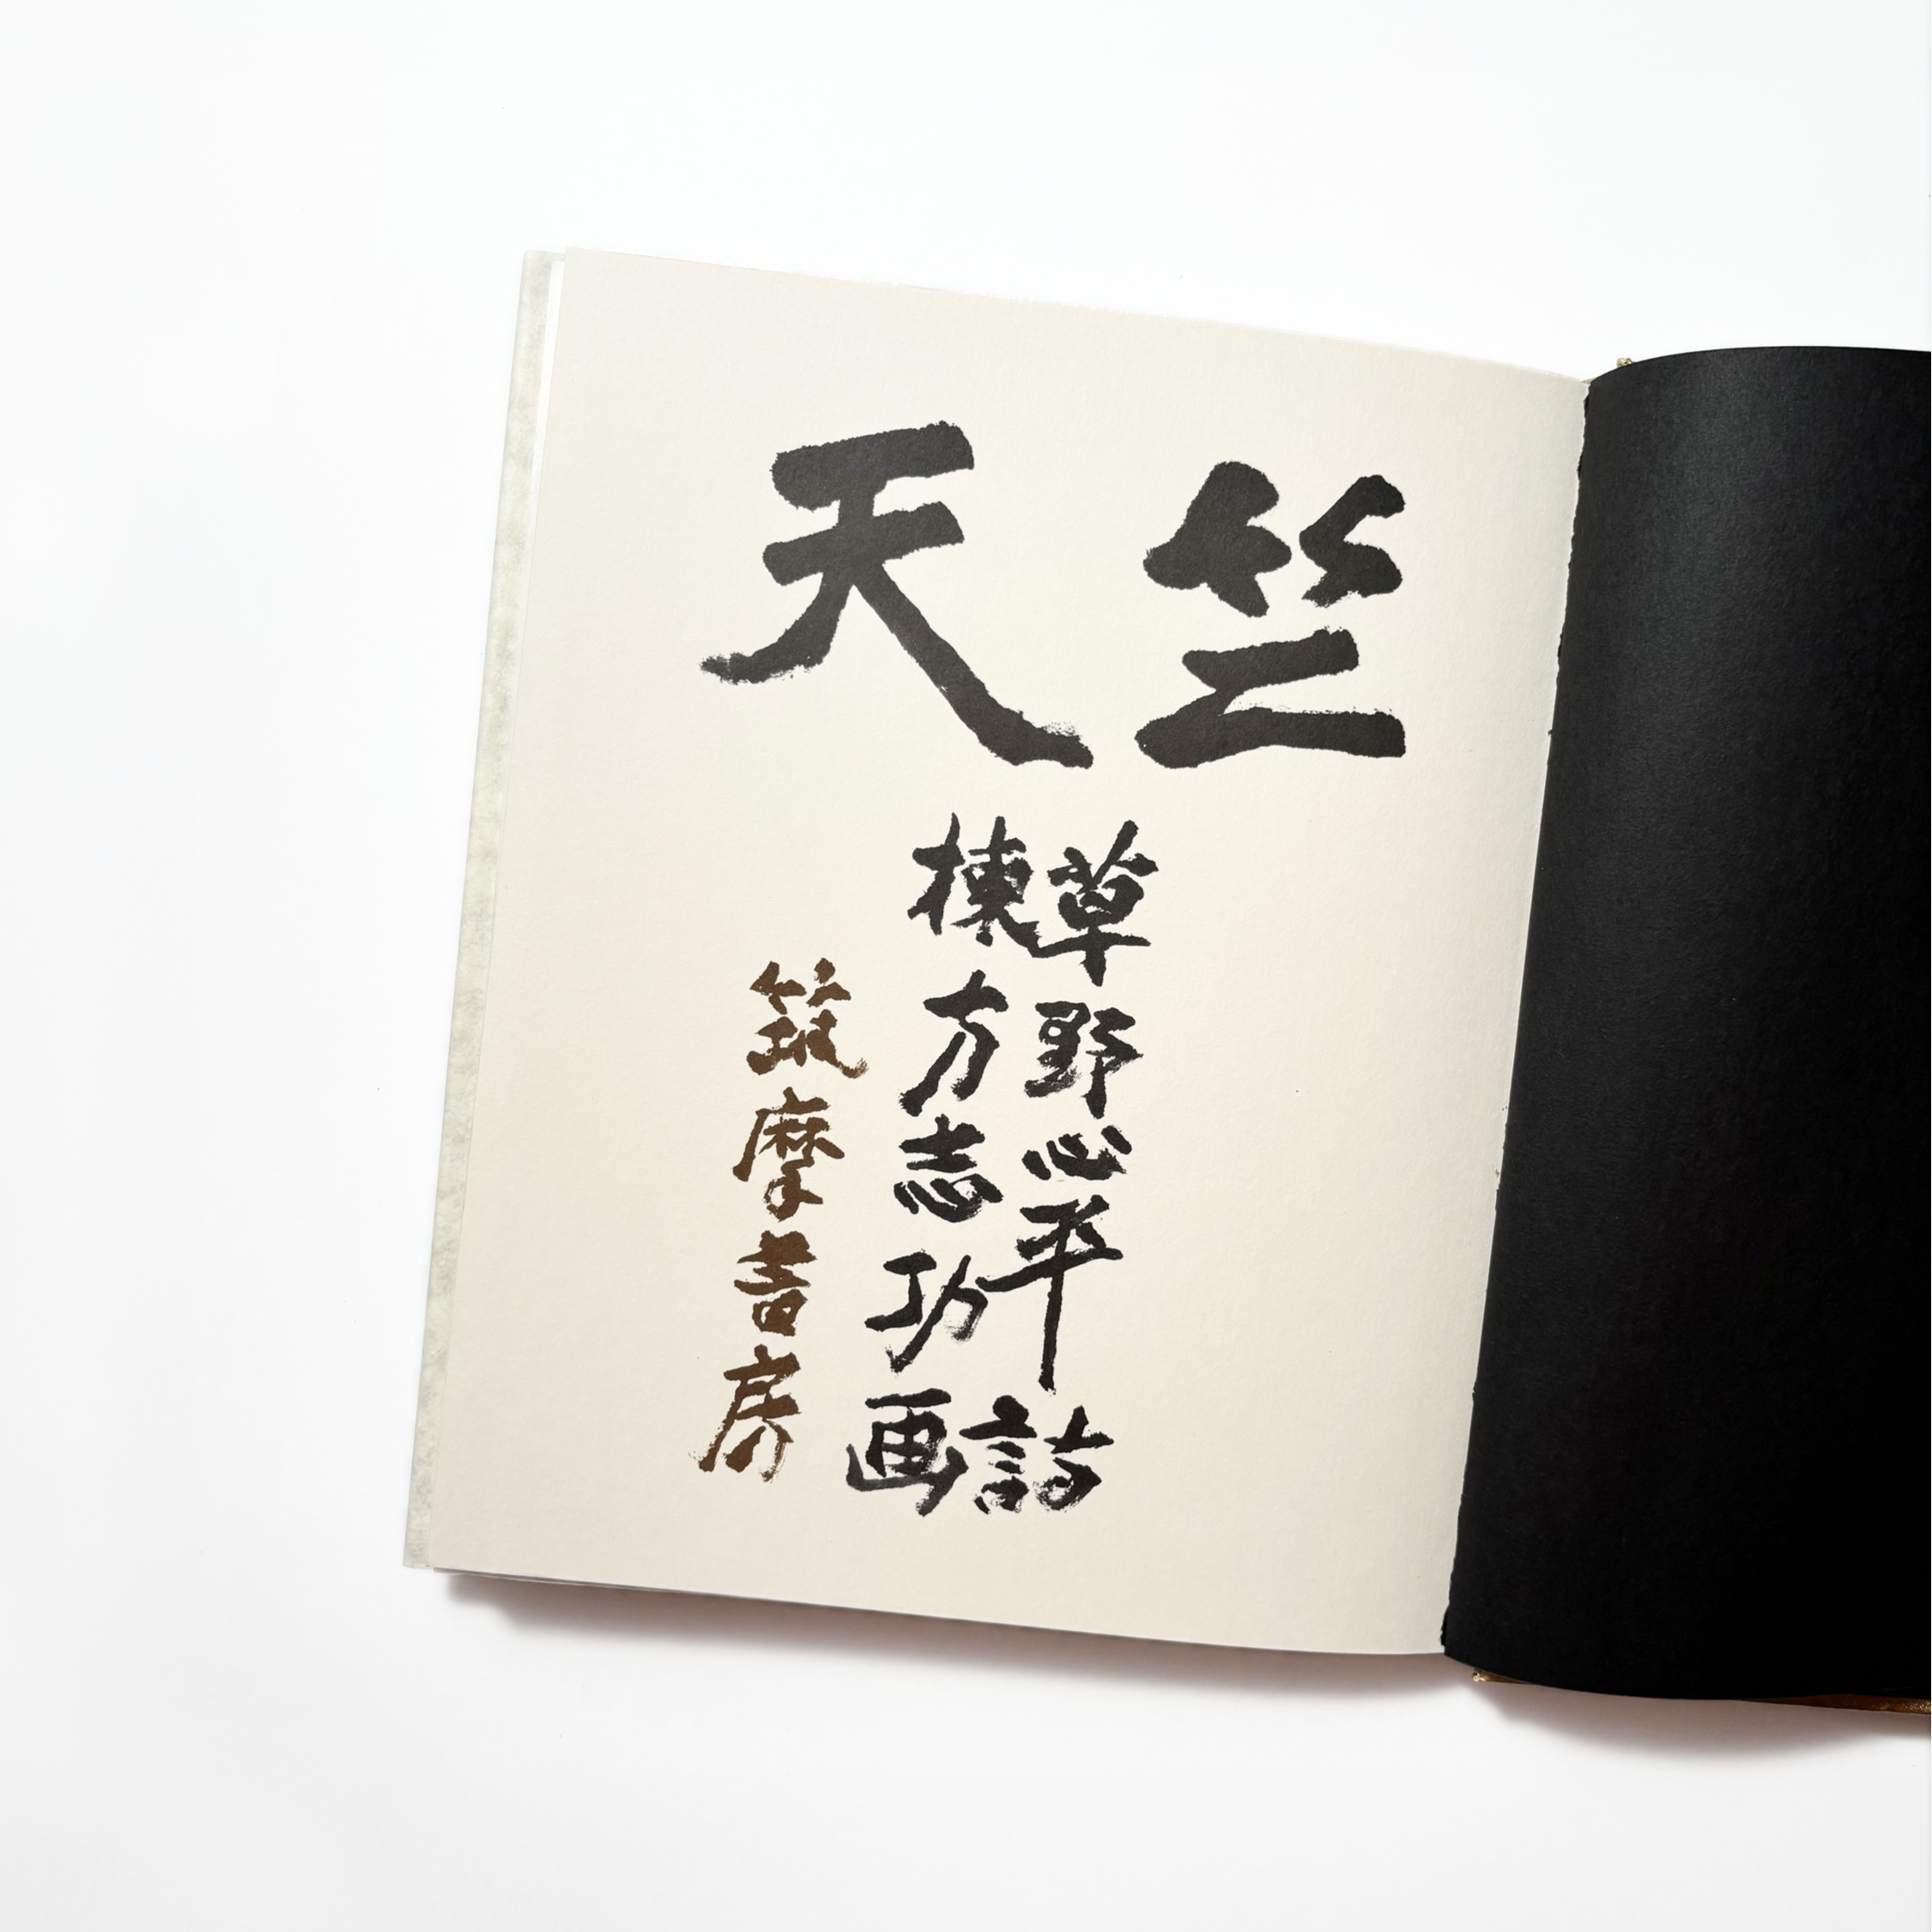 天竺
草野心平詩
棟方志功画
筑摩書房